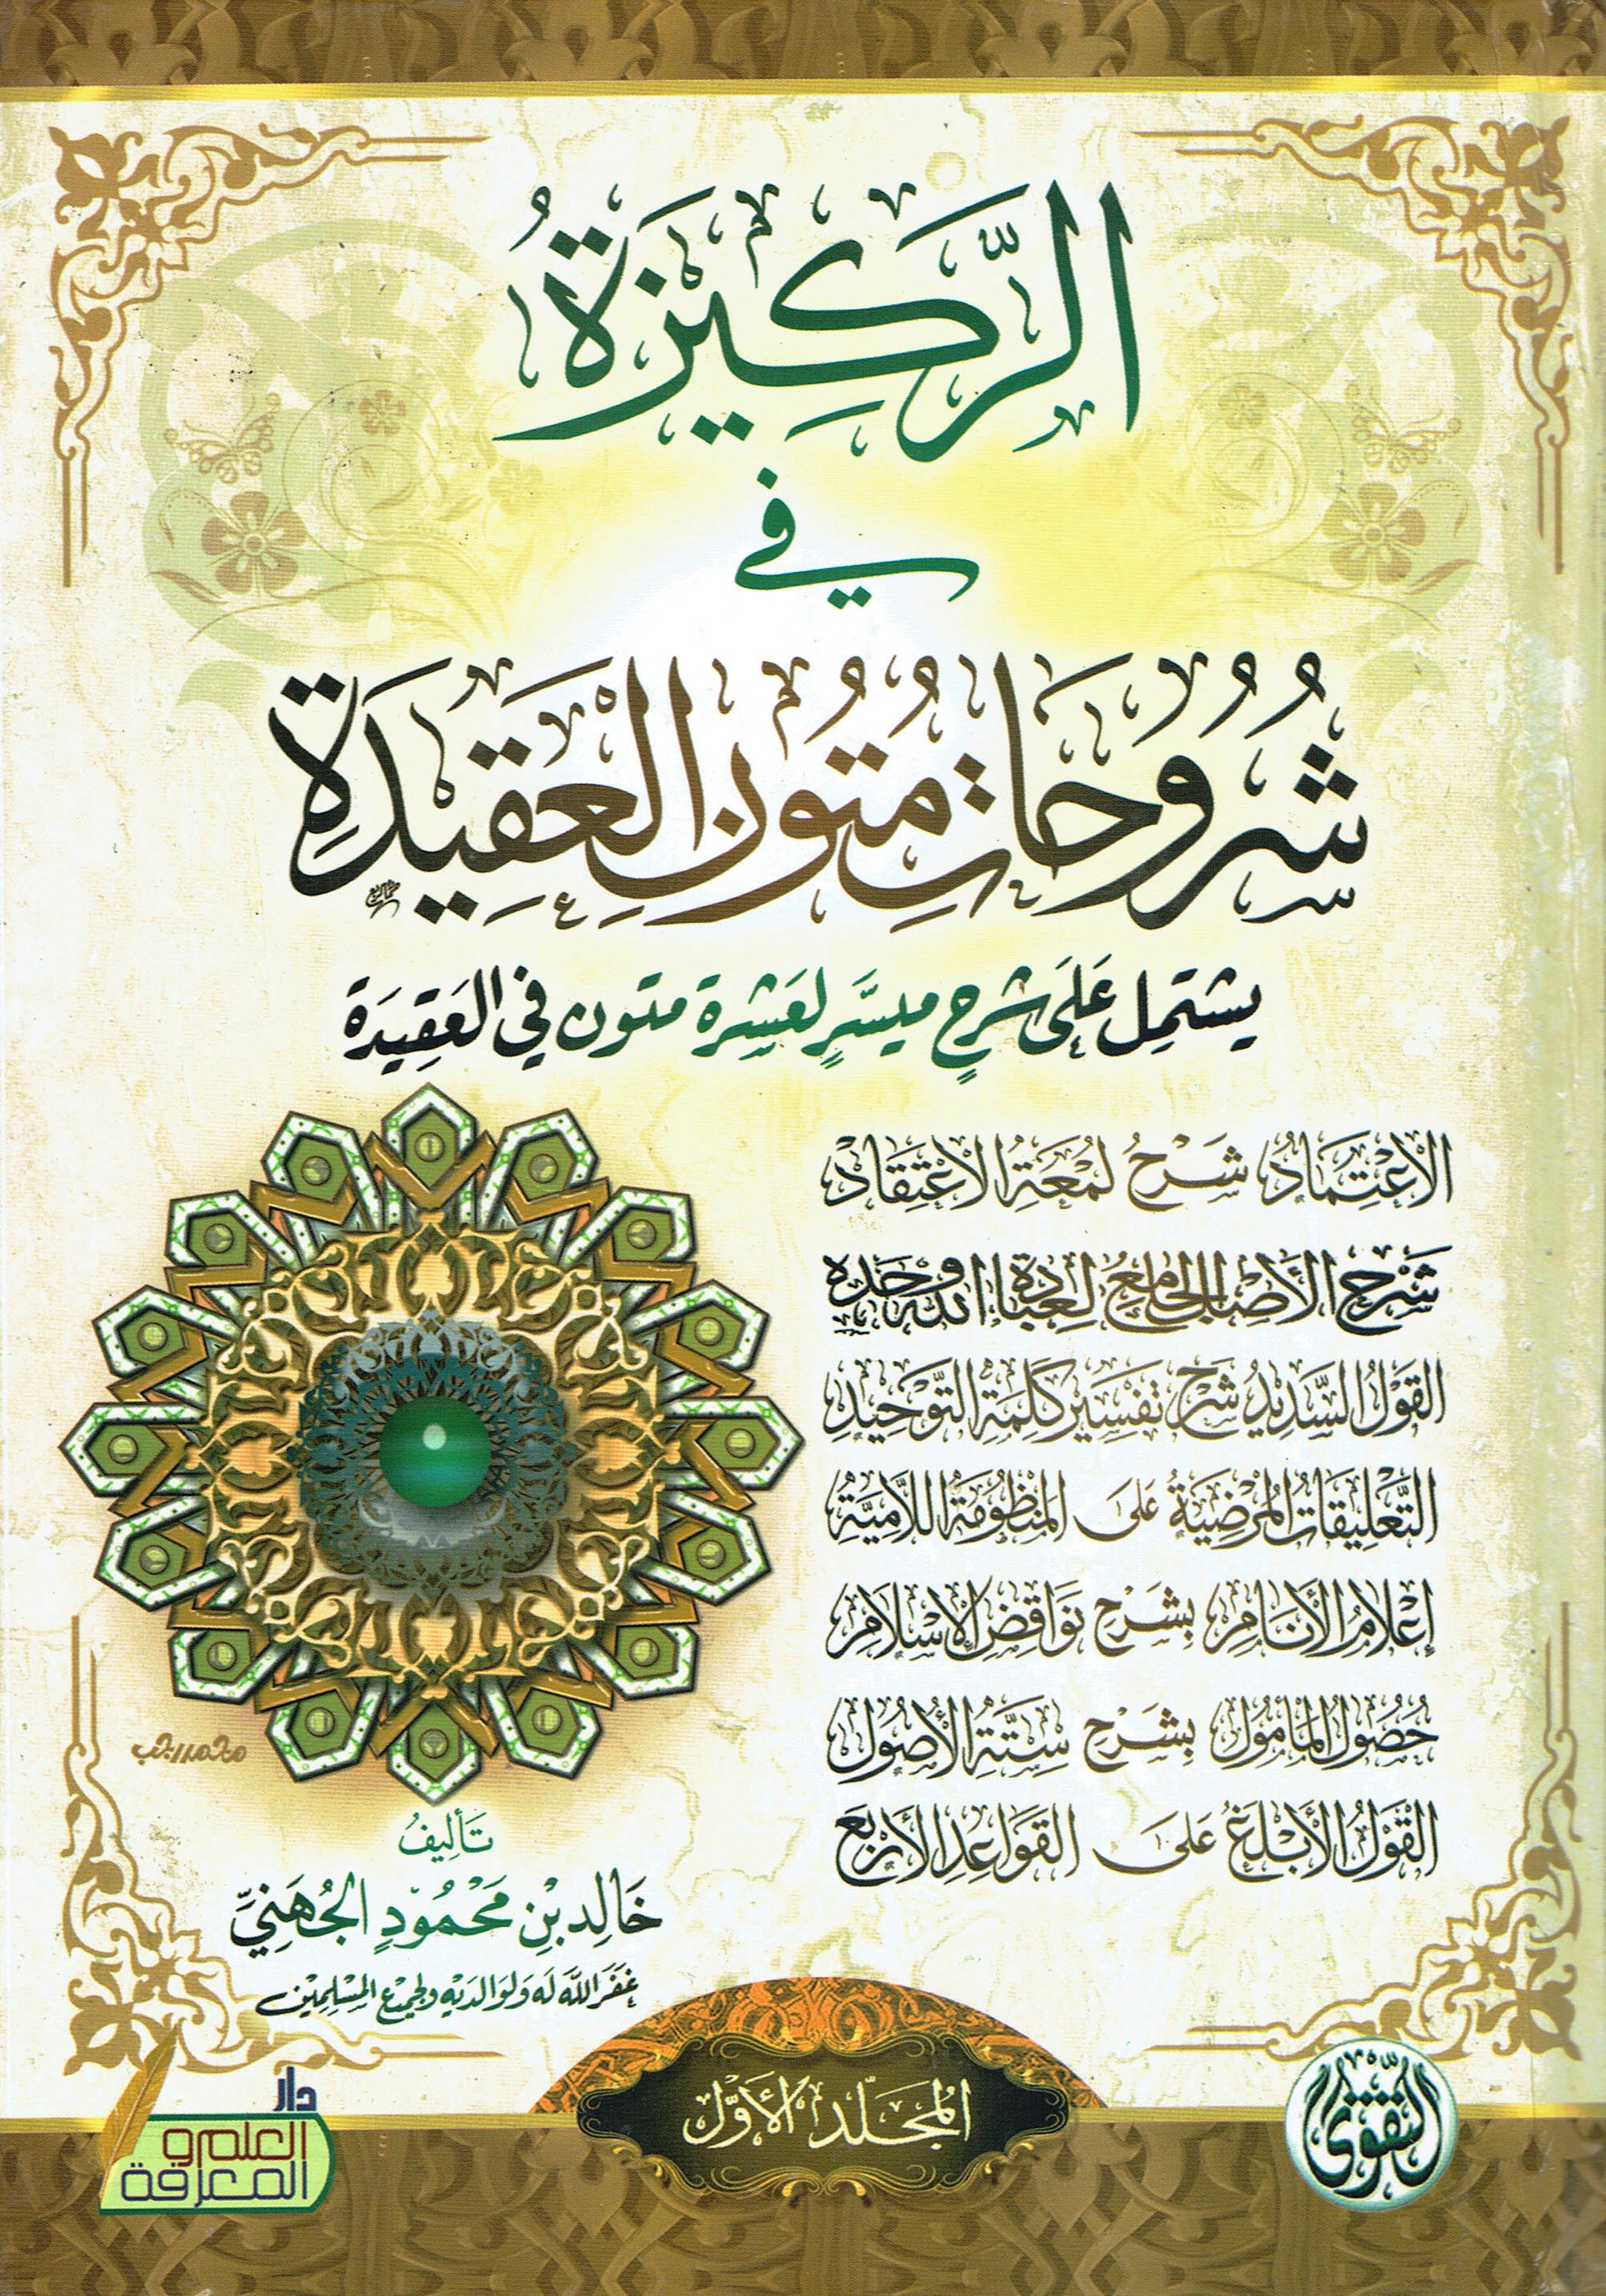 الرَّكِيزَةُ
في
شُرُوحَاتِ مُتُونِ العَقِيدَةِ
يشتمل عَلَى شرحٍ ميسَّرٍ لعَشرة متون في العَقِيدَة
الاعْتِمَادُ شَرْحُ لُمْعَةُ الاعْتِقَادْ
شَرْح الأَصْل الجَامِعُ لعِبَادَة الله وَحْدَه
القَوْلُ السَّدِيْدُ شَرْح تَفْسِيْر كَلِمَةُ التَّوْحِيدِ
التَّعْلِيقَاتُ المُرْضِيَةُ عَلىَ المَنْظُومَةُ اللاَّمِيَّةُ
إعْلَامُ الأَنَامِ بِشَرْحِ نَوَاقِضِ الإِسْلَامِ
حُصُولُ المَأْمُوْلِ بِشَرْحِ سِتَّةُ الأُصُوْلِ
القَوْلُ الأَبْلَغُ عَلىَ القَوَاعِدِ الأَرْبَعِ
تَأليفُ
خَالِد بْنِ مَحْمُودٍ الجُهَنِيِّ
غفَرَ اللَّه لَه وَلوَالدَيْه وَلجَميْع المُسْلِمِيْن
محمد رجب
المُجَلّد الأَوَّل
دار
العلم و
المعرفة
التقوى